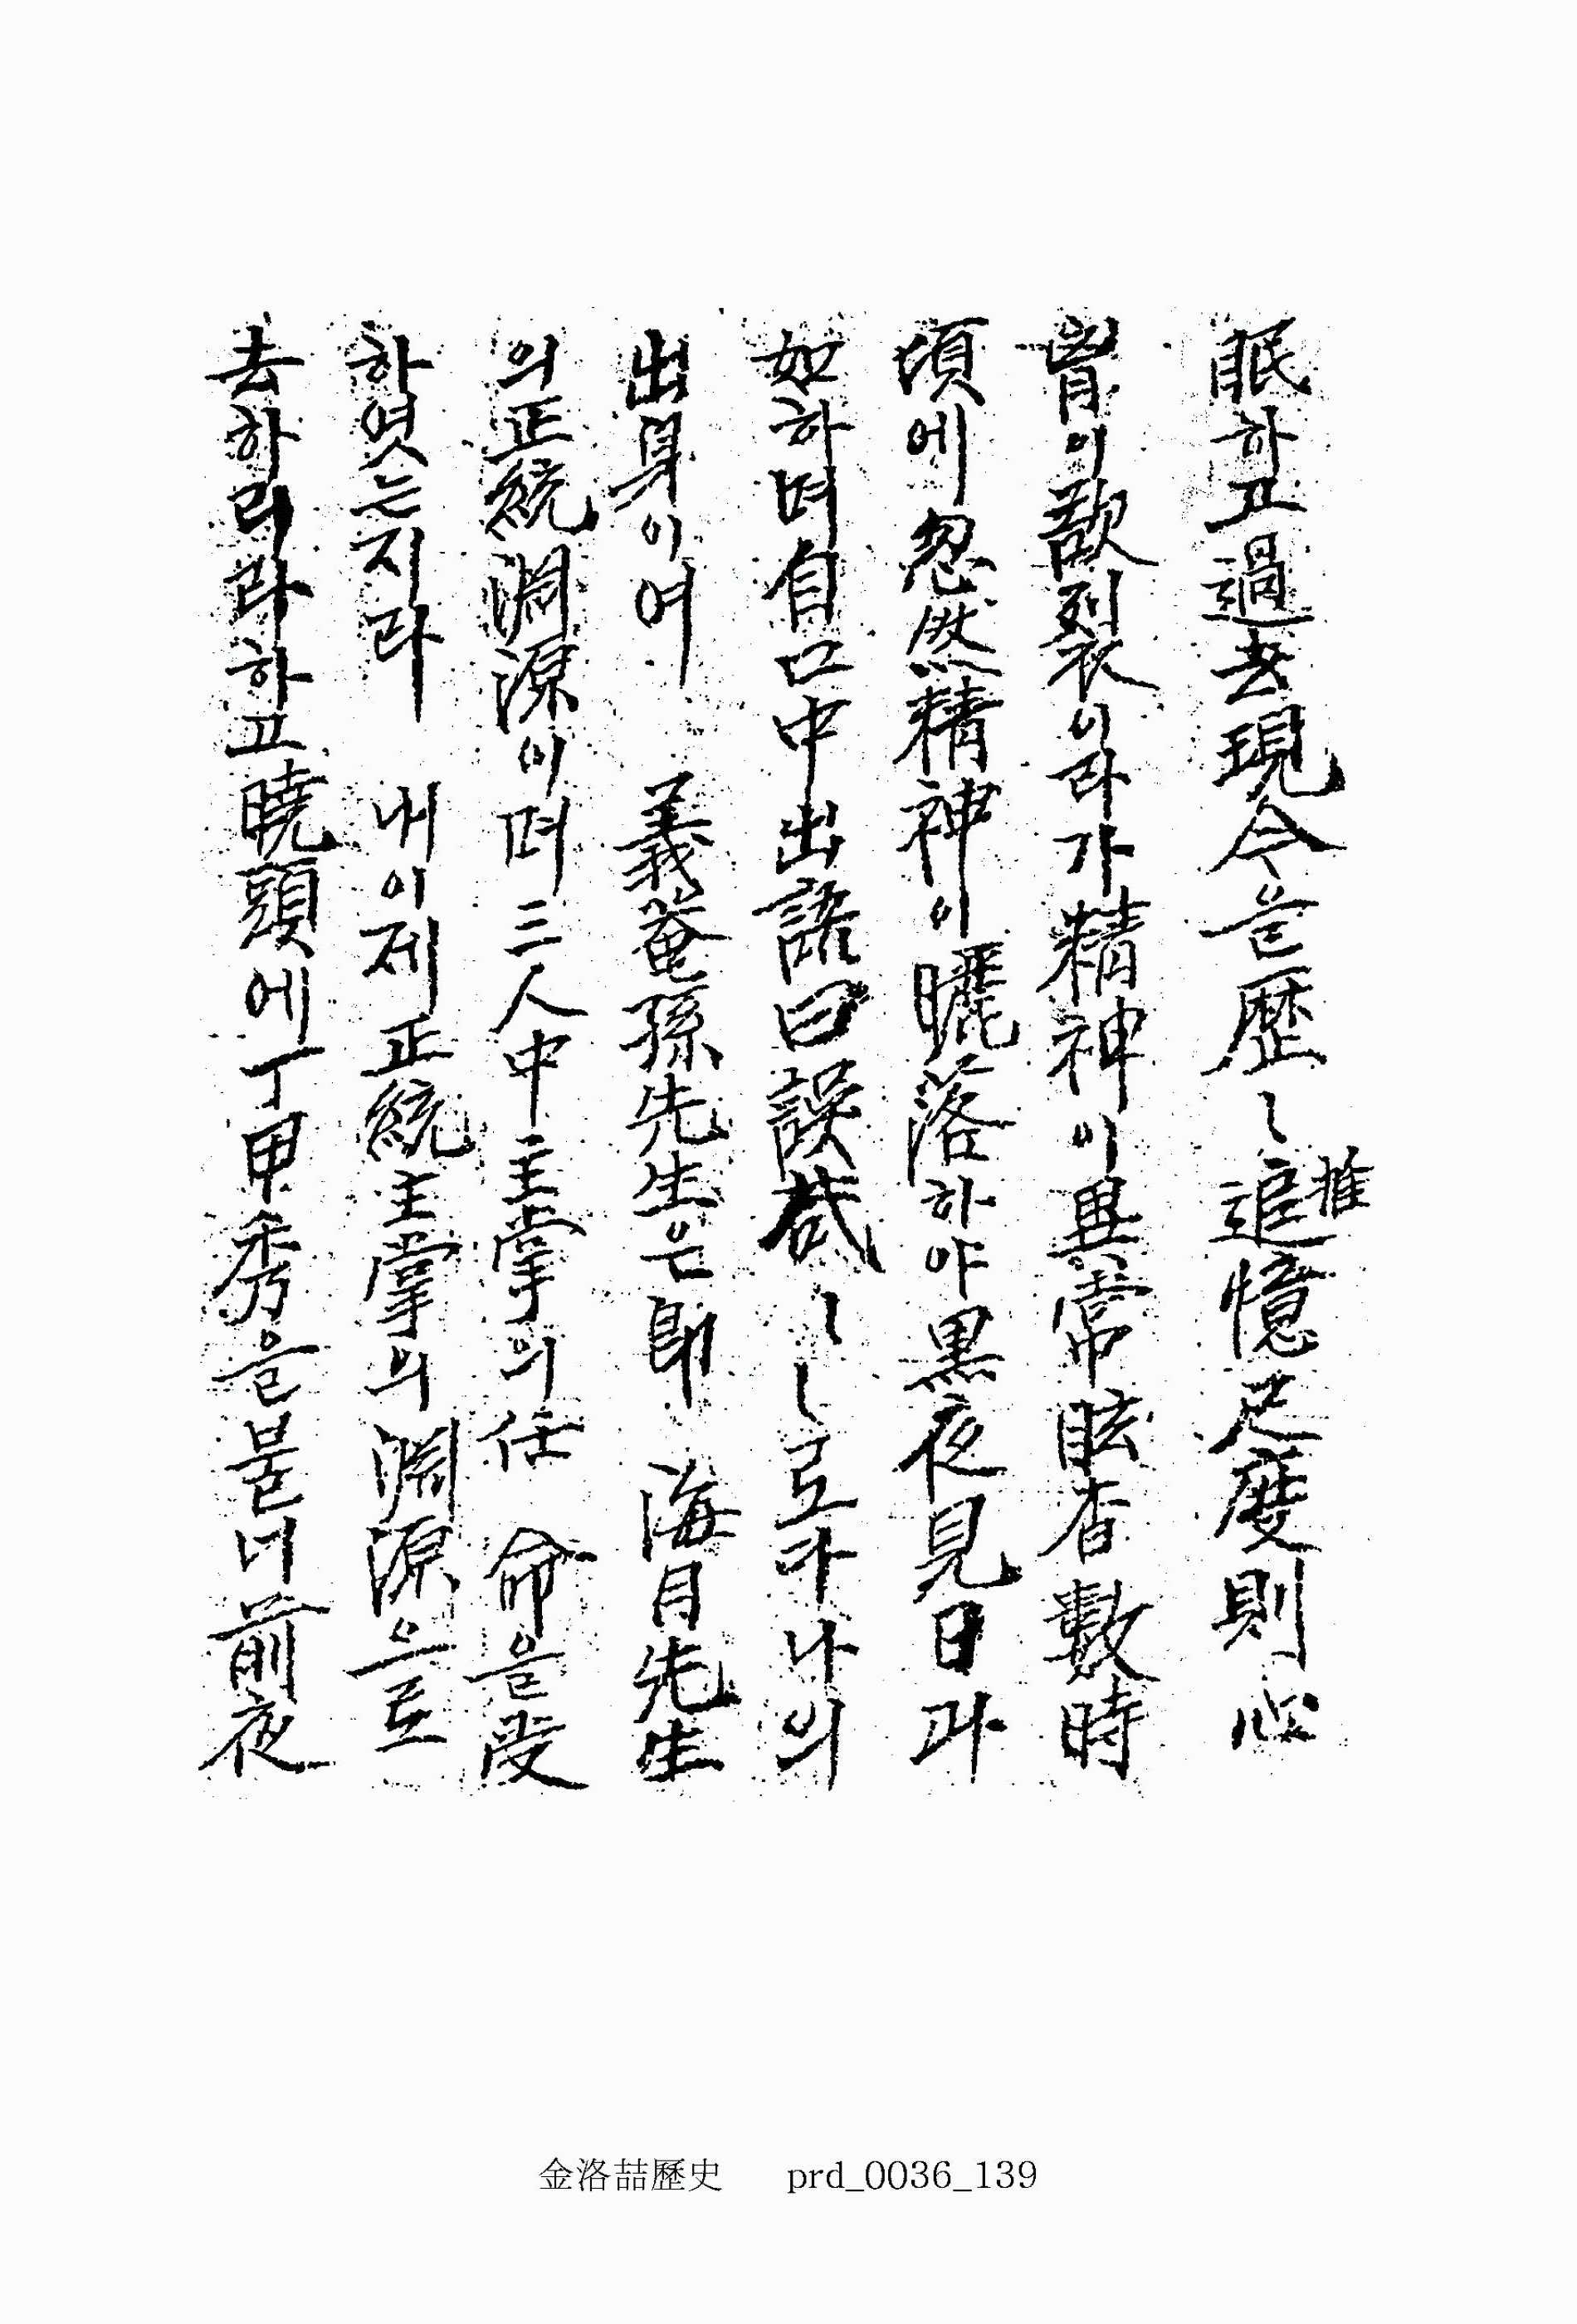 眠하고過去現今은歷〻追推憶尺度則心
胷이欲裂이라가精神이異常眩杳數時
頃에忽然精神이曬落하야黑夜見日과
如하며自口中出語曰誤哉〻〻로다나의
出身이여 義菴孫先生은卽 海月先生
의正統淵源이며三人中主掌의任 命을受
하엿는지라 내이제正統主掌의淵源으로
去하리라하고曉頭에丁甲秀을불너前夜
金洛喆歷史 prd_0036_139